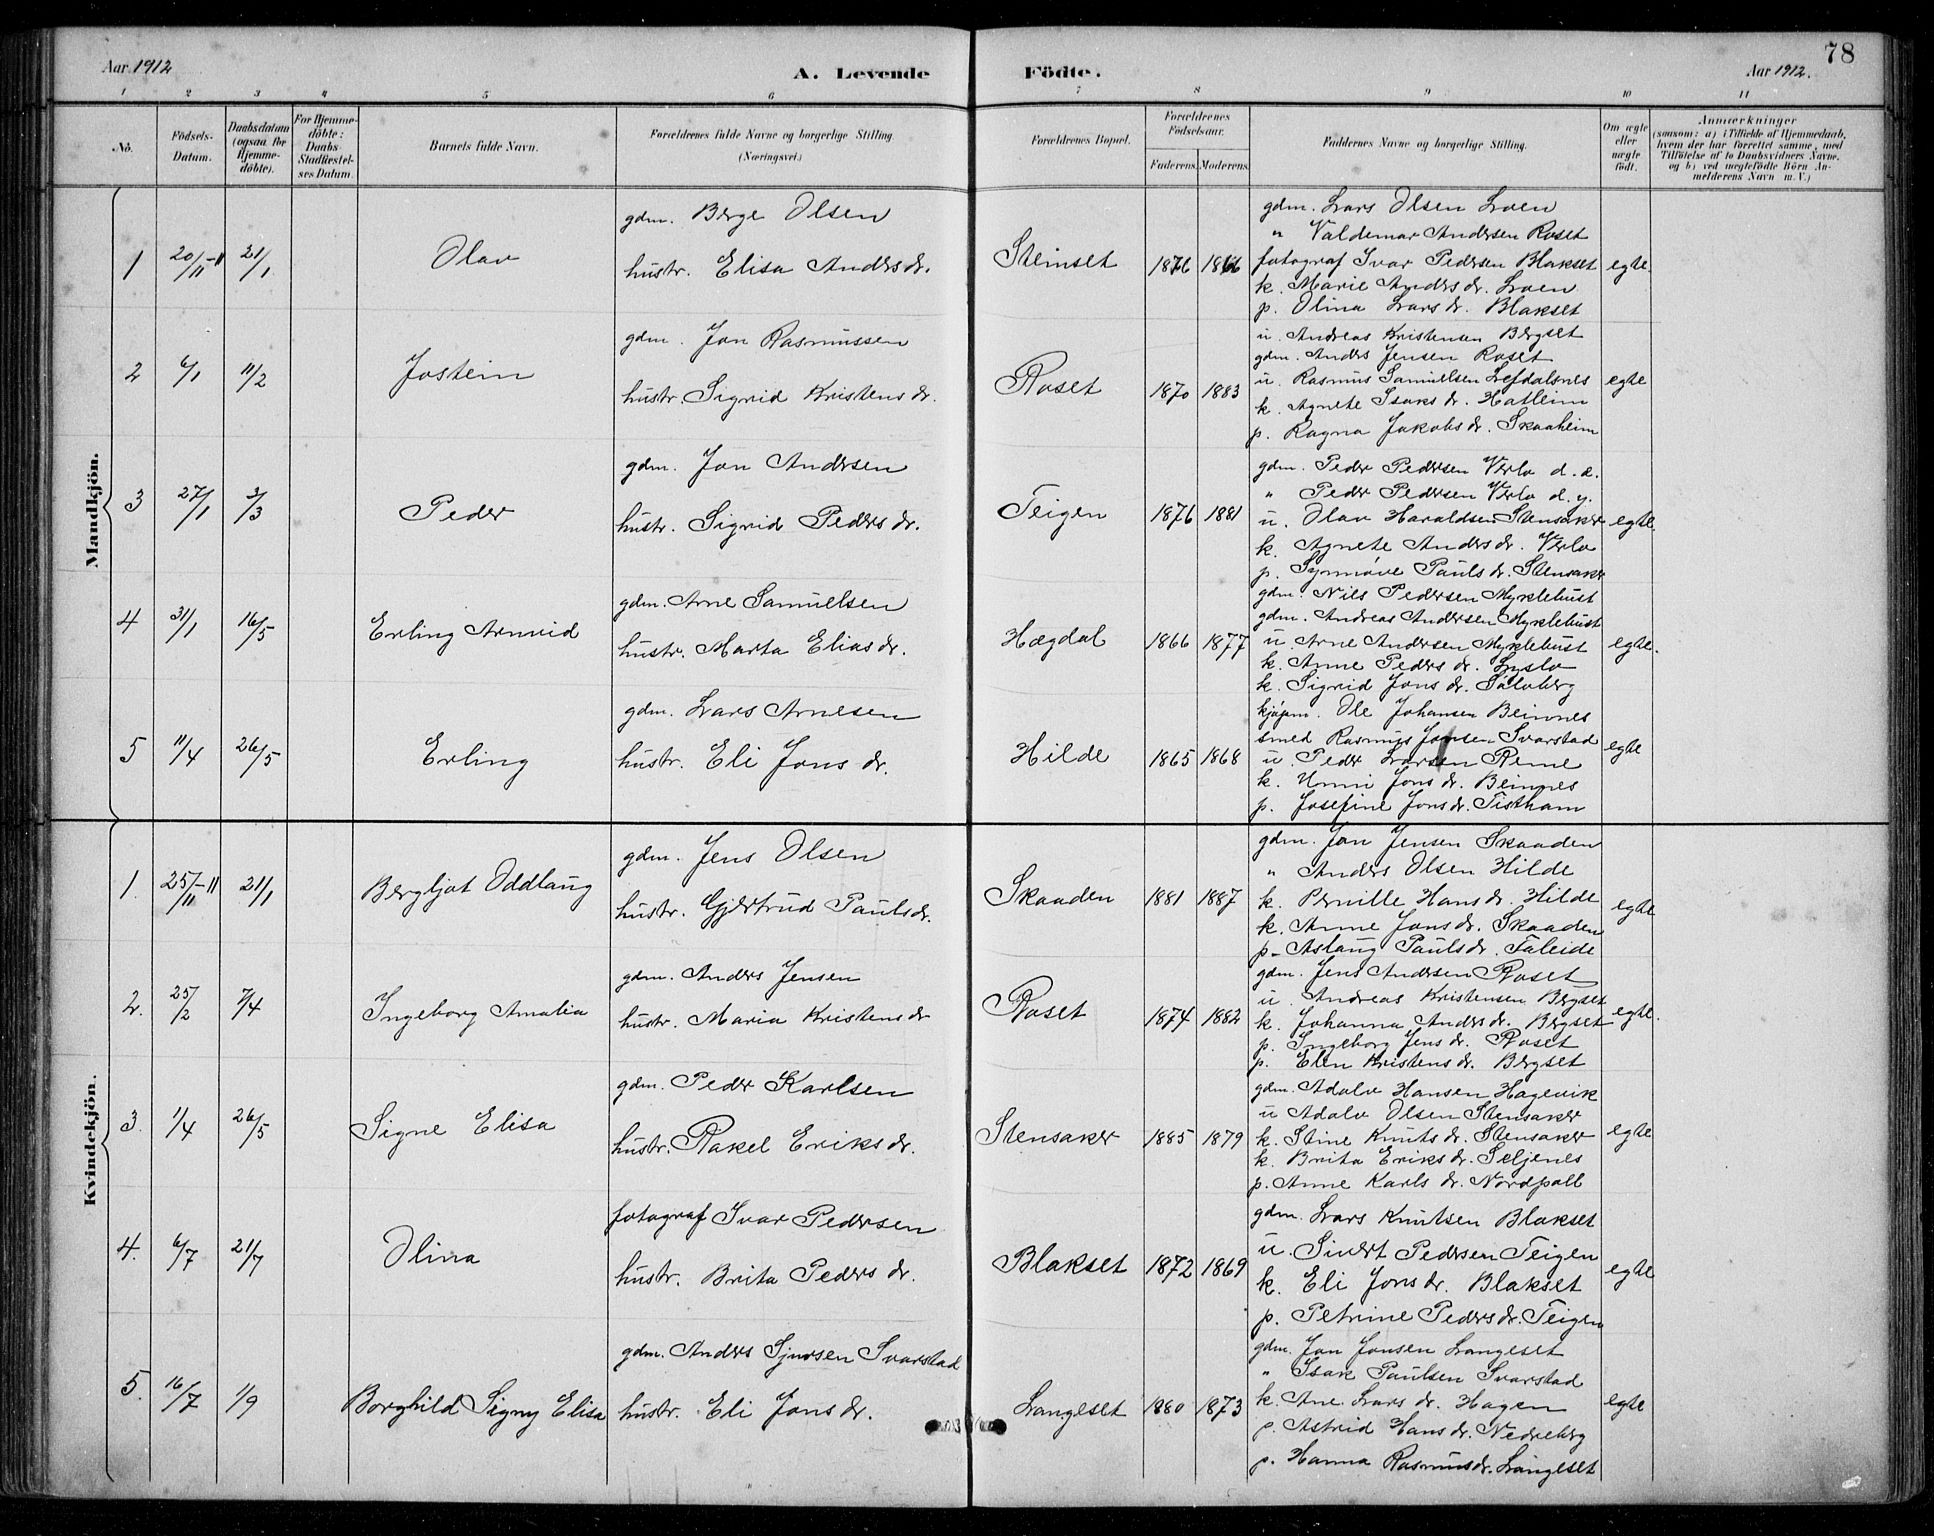 78
Aar 1912
A. Levende Födte.
Aar 1912.
1 2 3 4 5 6 7 8 9 10 11
No.
Födsels-Datum.
Daabsdatum (ogsaa for Hjemme-döbte).
For Hjemme-döbte: Daabs-Stadfæstel-ses Datum.
Barnets fulde Navn.
Forældrenes fulde Navne og borgerlige Stilling.
(Næringsvei.)
Forældrenes Bopæl.
Forældrenes Födselsaar.
Faderens. Moderens.
Faddernes Navne og borgerlige Stilling.
Om ægte eller uægte födt.
Anmærkninger
(saasom: a) i Tilfælde af Hjemmedaab, hvem der har forrettet samme, med Tilföielse af to Daabsvidners Navne, og b) ved uægtefödte Börn Anmelderens Navn m. V.)
Mandkjön.
1 20/11-11 21/1 Olav
gdm. Berge Olsen
hustr. Elisa Andersdr.
Steinset 1876 1866
gdm. Lars Olsen Loen
" Valdemar Andersen Roset
fotograf Ivar Pedersen Blakset
k. Marie Andersdr. Loen
p. Olina Larsdr. Blakset
egte
2 6/1 11/2 Jostein
gdm. Jon Rasmussen
hustr. Sigrid Kristensdr.
Roset 1870 1883
u. Andreas Kristensen Bergset
gdm. Anders Jensen Roset
u. Rasmus Samuelsen Lefdalsnes
k. Agnete Isaksdr. Hatleim
p. Ragna Jakobsdr. Skaaheim
egte
3 27/1 3/3 Peder
gdm. Jon Andersen
hustr. Sigrid Pedersdr.
Teigen 1876 1881
gdm. Peder Pedersen Verlo d. e.
" Peder Pedersen Verlo d. y.
u. Olav Haraldsen Stensaker
k. Agnete Andersdr. Verlo
p. Synnöve Paulsdr. Stensaker
egte.
4 31/1 16/5 Erling Arnvid
gdm. Arne Samuelsen
hustr. Marta Eliasdr.
Hægdal 1866 1877
gdm. Nils Pedersen Myklebust
gdm. Andreas Andersen Myklebust
u. Arne Andersen Myklebust
k. Anne Pedersdr. Lyslo
k. Sigrid Jonsdr. Sölvberg
egte.
5 11/4 26/5 Erling
gdm. Lars Arnesen
hustr. Eli Jonsdr.
Hilde 1865 1868
kjöpm. Ole Johansen Beinnes
smed Rasmus Jonsen Svarstad
u. Peder Larsen Reme
k. Unni Jonsdr. Beinnes
p. Josefine Jonsdr. Tistham
egte
Kvindekjön.
1. 25/11-11 21/1 Bergljot Oddlaug
gdm. Jens Olsen
hustr. Gjertrud Paulsdr.
Skaaden 1881 1887
gdm. Jon Jensen Skaaden
" Anders Olsen Hilde
k. Pernille Hansdr. Hilde
k. Anne Jonsdr. Skaaden
p. Aslaug Paulsdr. Faleide
egte
2. 25/2 7/4 Ingeborg Amalia
gdm. Anders Jensen
hustr. Maria Kristensdr
Roset 1874 1882
gdm. Jens Andersen Roset
u. Andreas Kristensen Bergset
k. Johanna Andersdr. Bergset
p. Ingeborg Jensdr. Roset
p. Elen Kristensdr. Bergset
egte.
3. 1/4 26/5 Signe Elisa
gdm. Peder Karlsen
hustr. Rakel Eriksdr.
Stensaker 1885 1879
gdm. Adolv Hansen Hagevik
u Adolv Olsen Stensaker
k. Stine Knutsdr. Stensaker
k. Brita Eriksdr. Seljenes
p. Anne Karlsdr. Nordpoll
egte
4. 6/7 21/7 Olina
fotograf Ivar Pedersen
hustr. Brita Pedersdr.
Blakset 1872 1869
gdm. Lars Knutsen Blakset
u. Sivert Pedersen Teigen
k. Eli Jonsdr. Blakset
p. Petrine Pedersdr. Teigen
egte
5. 16/7 1/9 Borghild Signy Elisa
gdm. Anders Sjursen Svarstad
hustr. Eli Jonsdr.
Langeset 1880 1873
gdm. Jon Jonsen Langeset
" Isak Paulsen Svarstad
k. Ane Larsdr. Hagen
p. Astrid Hansdr. Nedreberg
p. Hanna Rasmusdr. Langeset
egte